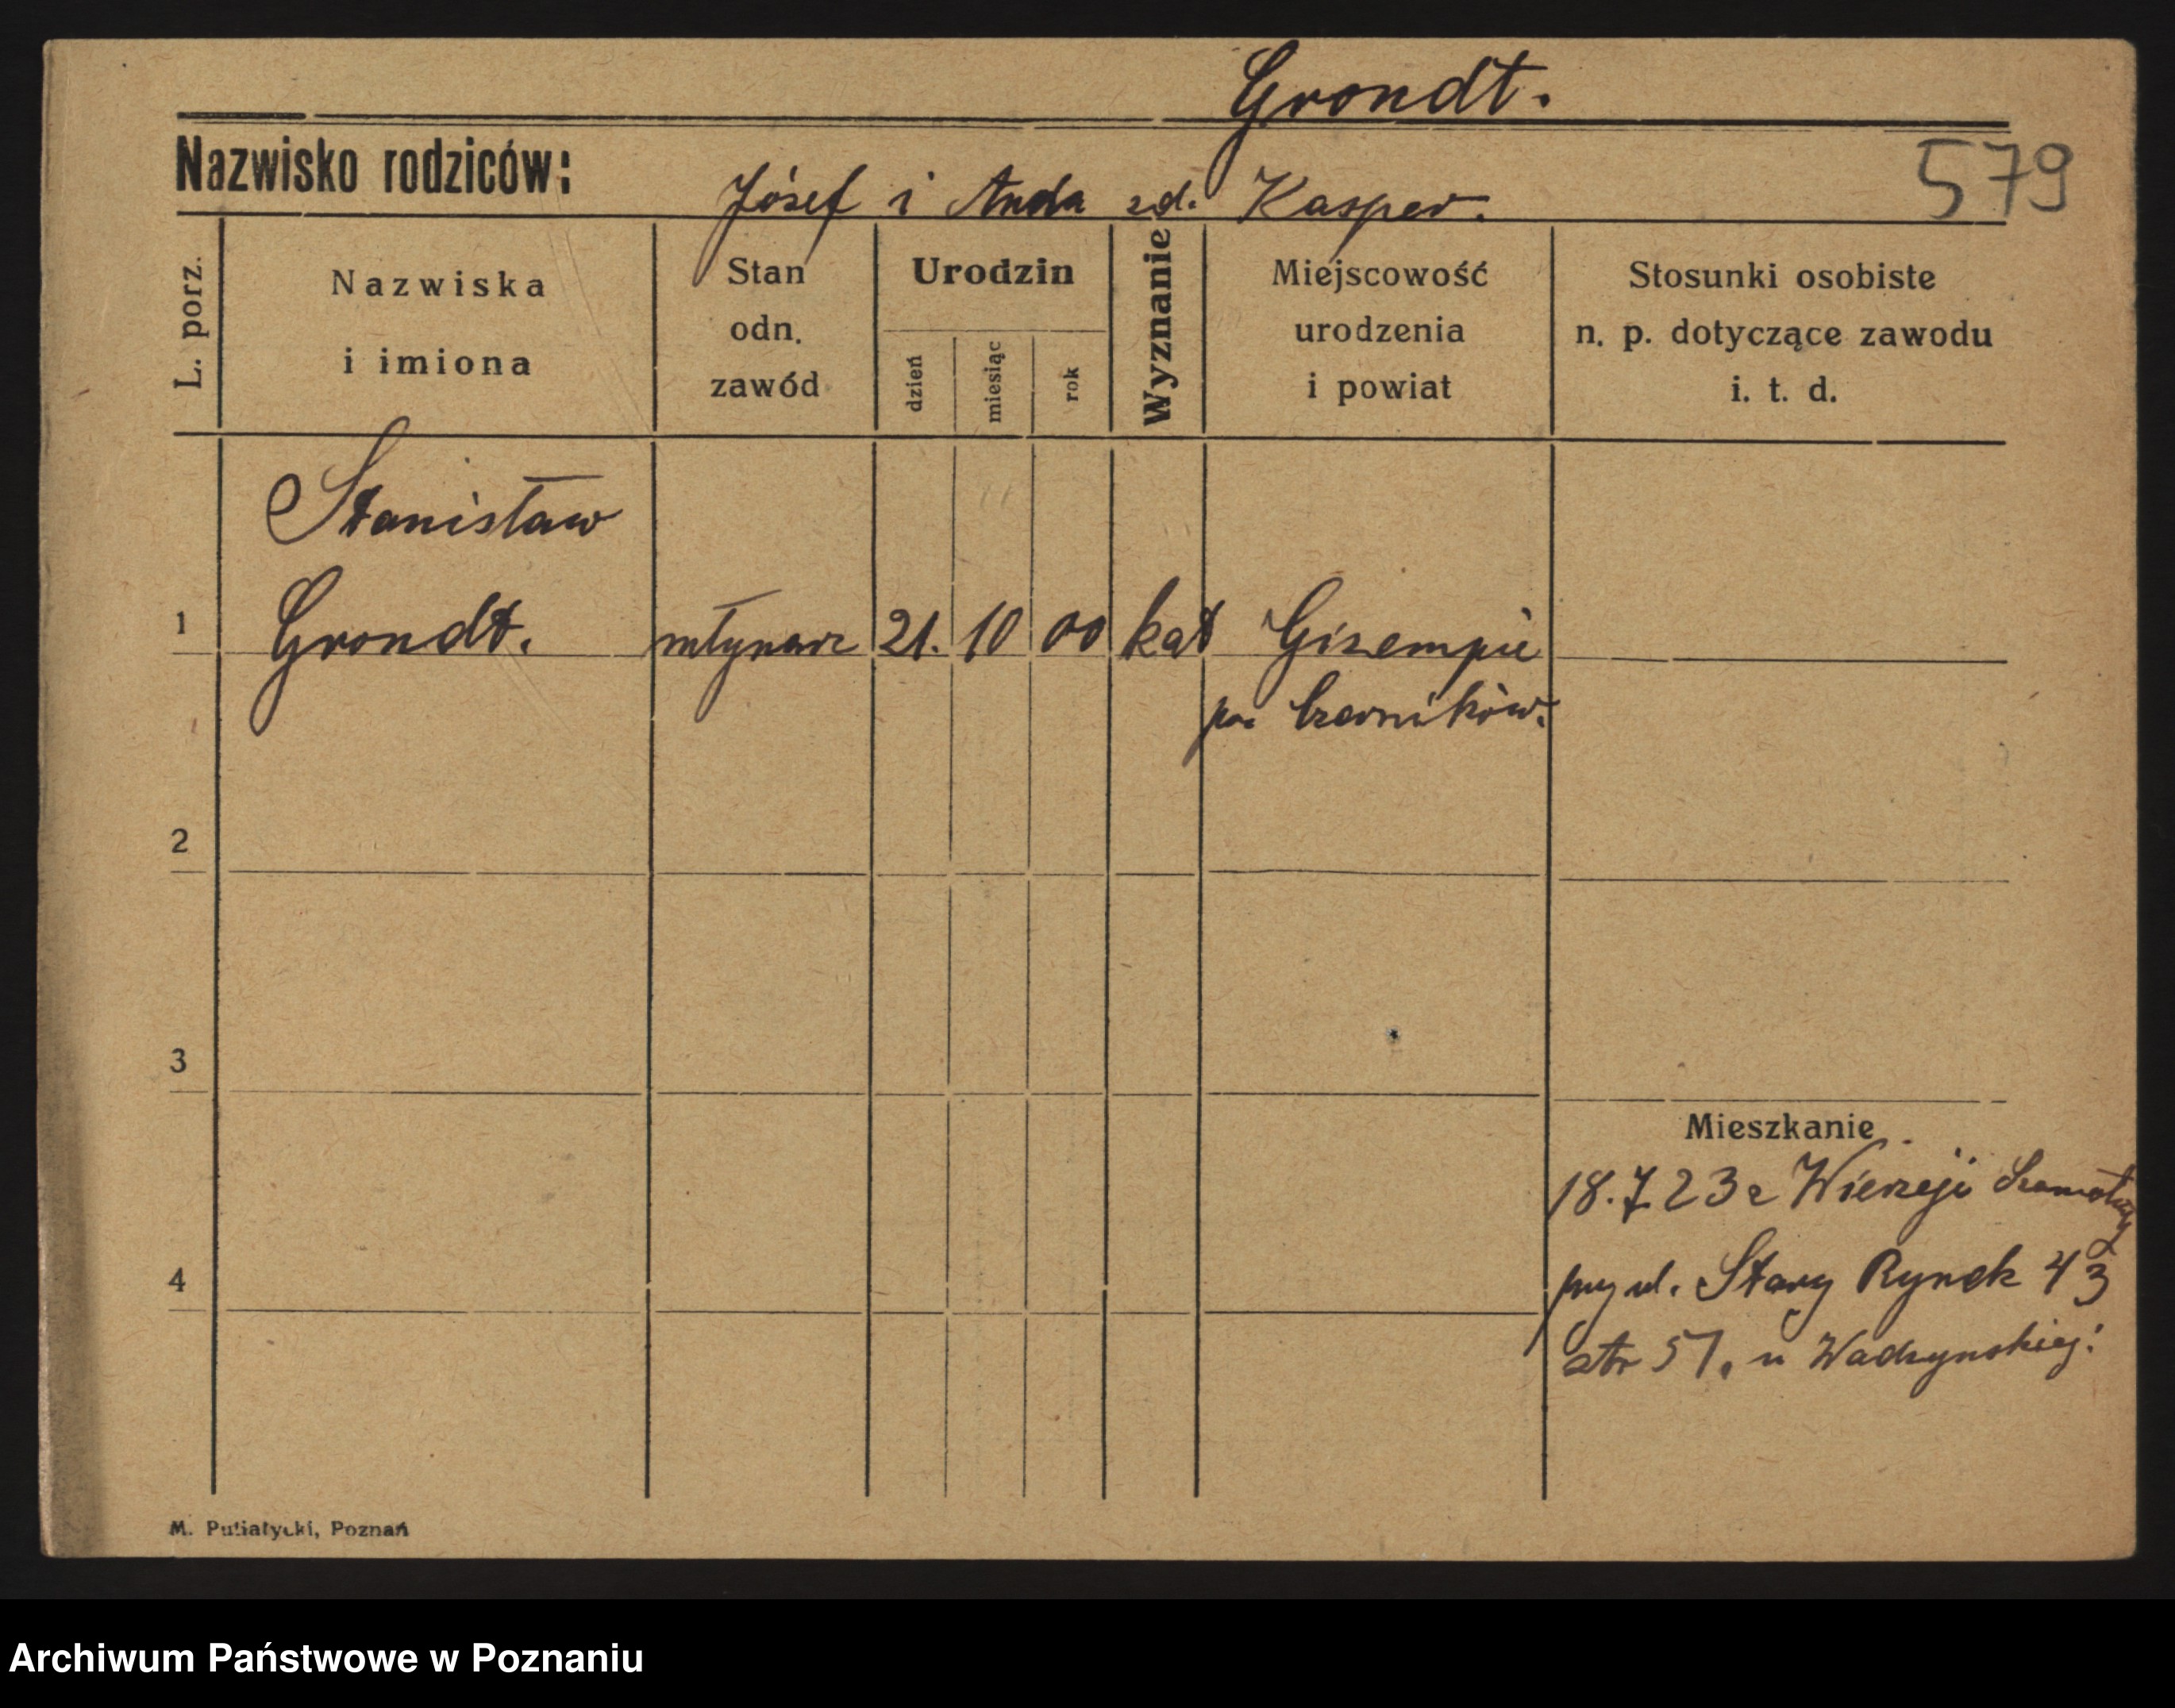 Grondt.
Nazwisko rodziców:
Józef i Anda zd. Kasper.
579
L. porz.
Nazwiska
i imiona
Stan
odn.
zawód
Urodzin
dzień
miesiąc
rok
Wyznanie
Miejscowość
urodzenia
i powiat
Stosunki osobiste
n. p. dotyczące zawodu
i. t. d.
Stanisław
1 Grondt. młynarz 21. 10 00 kat Gizempie
pow. Czarników.
2
3
Mieszkanie
18.7.23 z Wierzeji Szamotuły
4
przy ul. Stary Rynek 43
str 51. u Wadzynskiej.
M. Putiatycki, Poznań
Archiwum Państwowe w Poznaniu